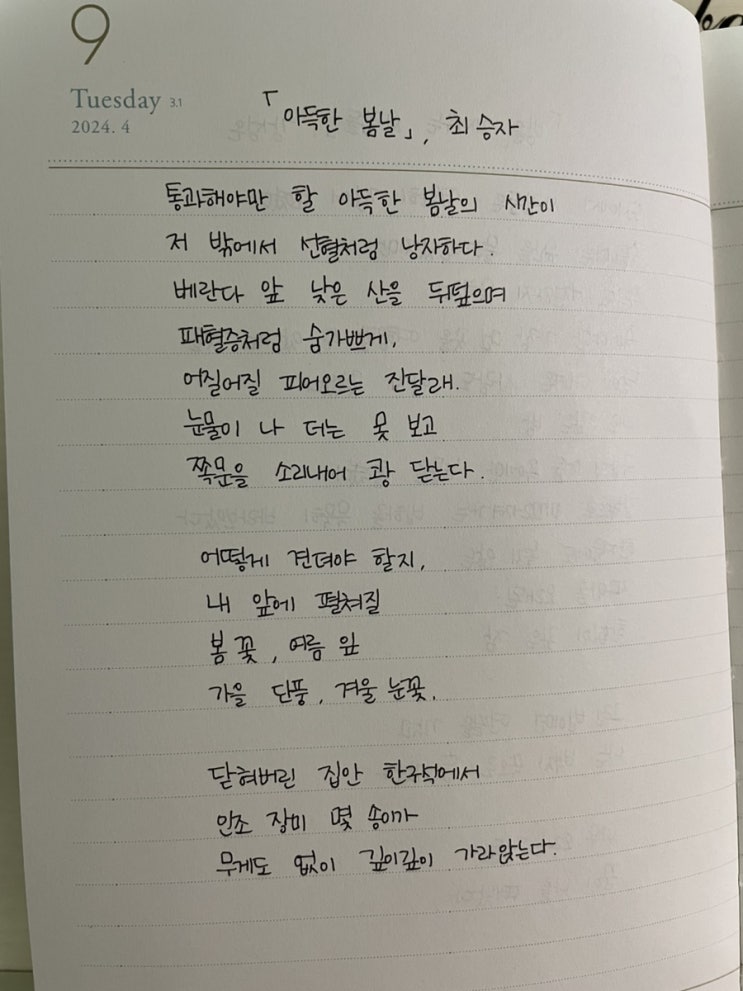 9
Tuesday 3.1
2024. 4
「아득한 봄날」, 최승자
통과해야만 할 아득한 봄날의 시간이
저 밖에서 선혈처럼 낭자하다.
베란다 앞 낮은 산을 뒤덮으며
패혈증처럼 숨가쁘게,
어질어질 피어오르는 진달래.
눈물이 나 더는 못 보고
쪽문을 소리내어 쾅 닫는다.
어떻게 견뎌야 할지,
내 앞에 펼쳐질
봄 꽃, 여름 잎
가을 단풍, 겨울 눈꽃.
닫혀버린 집안 한구석에서
인조 장미 몇 송이가
무게도 없이 깊이깊이 가라앉는다.